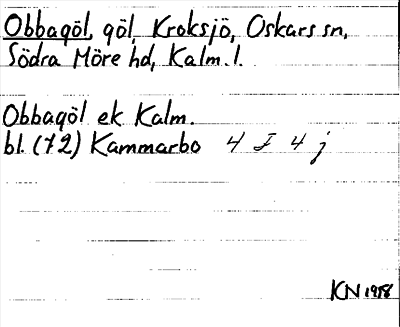 Obbagöl, göl, Kroksjö, Oskars sn,
Södra Möre hd, Kalm. l.
Obbagöl ek Kalm.
bl. (72) Kammarbo 4 I 4 j
KN 1978